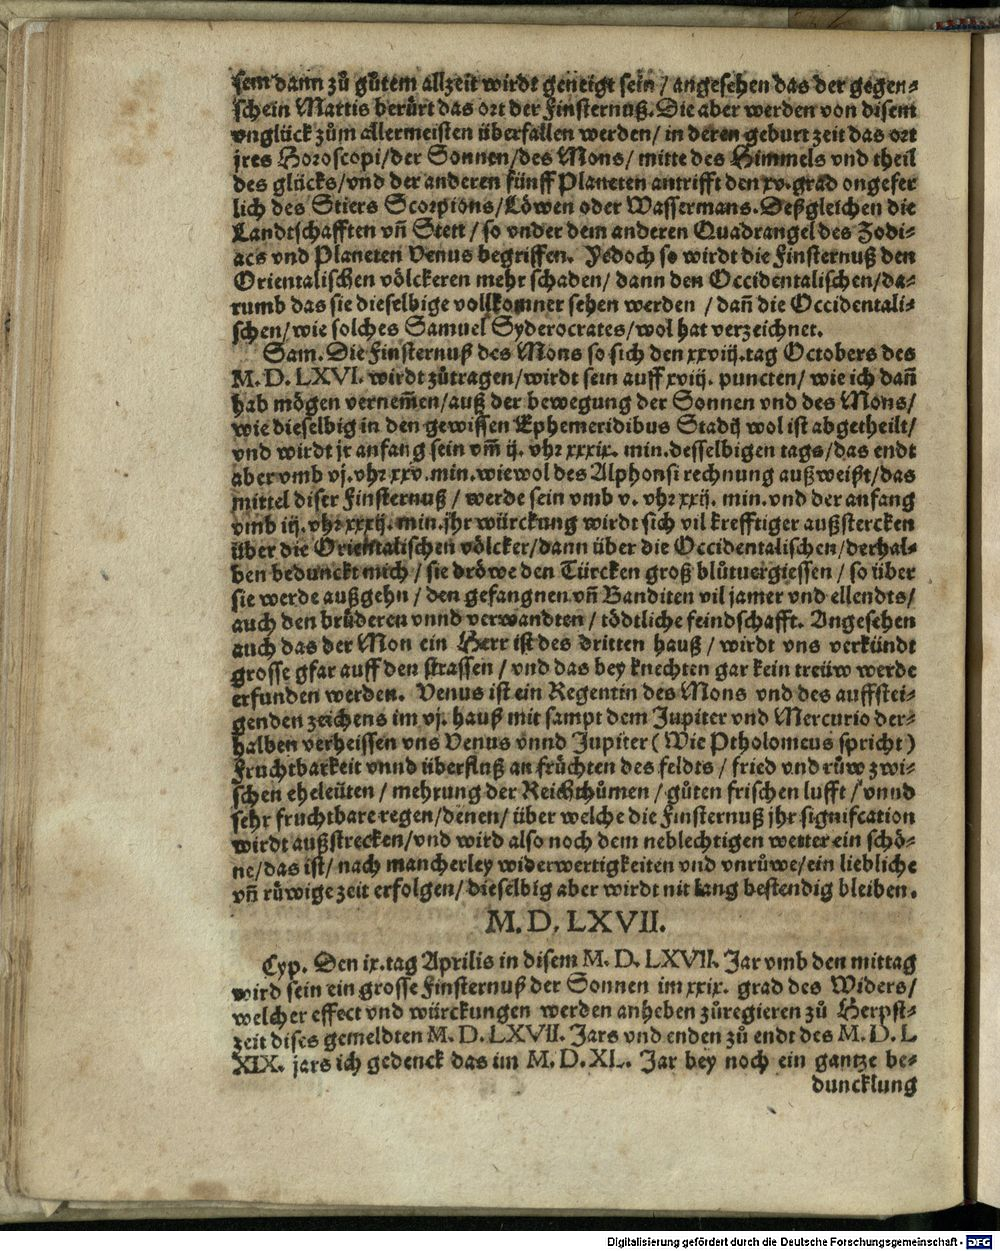 sem dann zů gůtem allzeit wirdt geneigt sein / angesehen das der gegen⸗
schein Martis berürt das ort der Finsternuß. Die aber werden von disem
vnglück zům allermeisten überfallen werden / in deren geburt zeit das ort
jres Horoscopi/der Sonnen/des Mons/ mitte des Himmels vnd theil
des glücks/vnd der anderen fünff Planeten antrifft den xv. grad ongefer
lich des Stiers Scorpions/Löwen oder Wassermans. Deßgleichen die
Landtschafften vñ Stett / so vnder dem anderen Quadrangel des Zodi⸗
acs vnd Planeten Venus begriffen. Yedoch so wirdt die Finsternuß den
Orientalischen völckeren mehr schaden/ dann den Occidentalischen/da⸗
rumb das sie dieselbige vollkomner sehen werden / dañ die Occidentali⸗
schen/wie solches Samuel Syderocrates/wol hat verzeichnet.
Sam. Die Finsternuß des Mons so sich den xxviij. tag Octobers des
M. D. LXVI. wirdt zůtragen/wirdt sein auff xviij. puncten/ wie ich dañ
hab mögen verneṁen/auß der bewegung der Sonnen vnd des Mons/
wie dieselbig in den gewissen Ephemeridibus Stadij wol ist abgetheilt/
vnd wirdt jr anfang sein vm̃ ij. vhr xxxix. min. desselbigen tags/das endt
aber vmb vj. vhr xxv. min. wiewol des Alphonsi rechnung außweißt/das
mittel diser Finsternuß / werde sein vmb v. vhr xxij. min. vnd der anfang
vmb iij. vhr xxxij. min. jhr würckung wirdt sich vil krefftiger außstercken
über die Orientalischen völcker/dann über die Occidentalischen/derhal⸗
ben bedunckt mich / sie dröwe den Türcken groß blůtuergiessen / so über
sie werde außgehn / den gefangnen vñ Banditen vil jamer vnd ellendts/
auch den brůderen vnnd verwandten / tödtliche feindschafft. Angesehen
auch das der Mon ein Herr ist des dritten hauß / wirdt vns verkündt
grosse gfar auff den strassen / vnd das bey knechten gar kein treüw werde
erfunden werden. Venus ist ein Regentin des Mons vnd des auffstei⸗
genden zeichens im vj. hauß mit sampt dem Jupiter vnd Mercurio der⸗
halben verheissen vns Venus vnnd Jupiter ( Wie Ptholomeus spricht )
Fruchtbarkeit vnnd überfluß an früchten des feldts / fried vnd růw zwi⸗
schen eheleüten / mehrung der Reichthümen / gůten frischen lufft / vnnd
sehr fruchtbare regen/denen/ über welche die Finsternuß jhr signifcation
wirdt außstrecken/vnd wird also noch dem neblechtigen wetter ein schö⸗
ne/das ist/ nach mancherley widerwertigkeiten vnd vnrůwe/ein liebliche
vñ růwige zeit erfolgen/ dieselbig aber wirdt nit lang bestendig bleiben.
M. D. LXVII.
Cyp. Den ix. tag Aprilis in disem M. D. LXVII. Jar vmb den mittag
wird sein ein grosse Finsternuß der Sonnen im xxix. grad des Widers/
welcher effect vnd würckungen werden anheben zůregieren zů Herpst⸗
zeit dises gemeldten M. D. LXVII. Jars vnd enden zů endt des M. D. L
XIX. jars ich gedenck das im M. D. XL. Jar bey noch ein gantze be⸗
duncklung
Digitalisierung gefördert durch die Deutsche Forschungsgemeinschaft - DFG